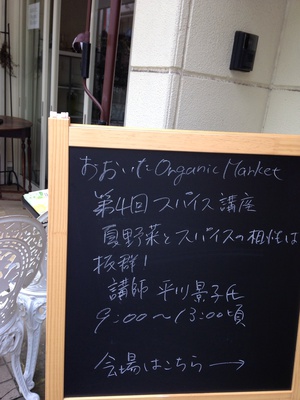 おおいたOrganic Market
第4回スパイス講座
夏野菜とスパイスの相性は
抜群！
講師 平川景子氏
9:00〜13:00頃
会場はこちら→